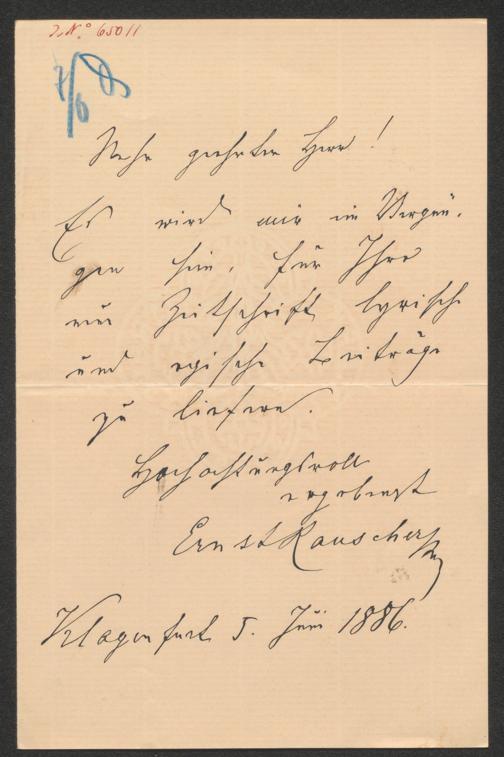 I.N.º 65011
7/6
Sehr geehrter Herr!
Es wird mir ein Vergnü-
gen sein, für Ihre
neue Zeitschrift lyrische
und epische Beiträge
zu liefern.
Hochachtungsvoll
ergebenst
Ernst Rauscher
Klagenfurt 5. Juni 1886.